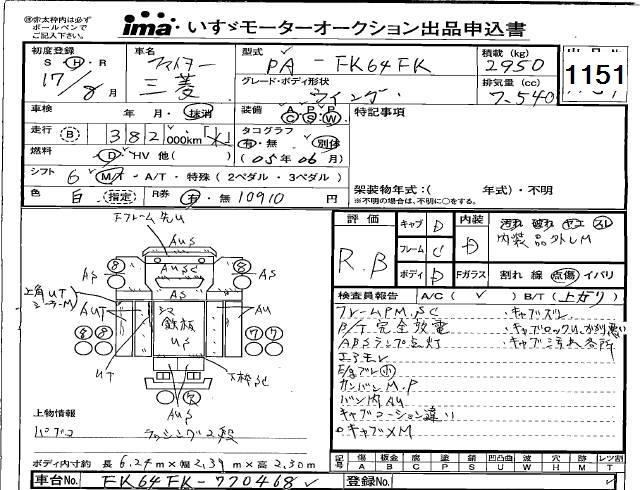 ㊟赤太枠内は必ず
ボールペンで
ご記入下さい。
ima いすゞモーターオークション出品申込書
初度登録
S H・R
17/8月
車名
ファイター
三菱
型式
PA-FK64FK
グレード・ボディ形状
ウイング
積載(kg)
2950
排気量(cc)
7.540
1151
車検 年・月・抹消
装備 A/C P/S P/W
特記事項
走行 (B) 382,000km「 」
タコグラフ
有・無 別体
(05年06月)
燃料 D HV 他( )
シフト 6 M/T・A/T・特殊(2ペダル・3ペダル)
色 白 指定 R券 有・無 10910 円
架装物年式:( 年式)・不明
※不明の場合は、不明に○をする。
下フレーム先U
AUS
AUSC
AS
AS
AS
上角UT
UT
AU
シマ鉄板
US
下枠SC
AUS
8 8 8 8 7 7
上物情報
パブコ ラッシング2段
ボディ内寸約 長 6.24m×幅 2.39m×高 2.30m
車台No. FK64FK-770468
評価
R.B
キャブ D
フレーム C
ボディ D
内装 D
汚れ 破れ ヤニ スレ
内装品外しM
Fガラス 割れ 線 点傷 イバリ
検査員報告 A/C( ✓ ) B/T(上がり)
フレームPM,SC
・キャブズレ
B/T完全放電
・キャブロック
ABSランプ点灯
エアモレ
E/gブレ小
カンバンM.P
バン内AU
キャブコーション違い
キャブXM
記号 傷A 板金B 腐C 塗P 錆S 凹凸曲U 波W 穴H 跡M レンズ割T
登録No.